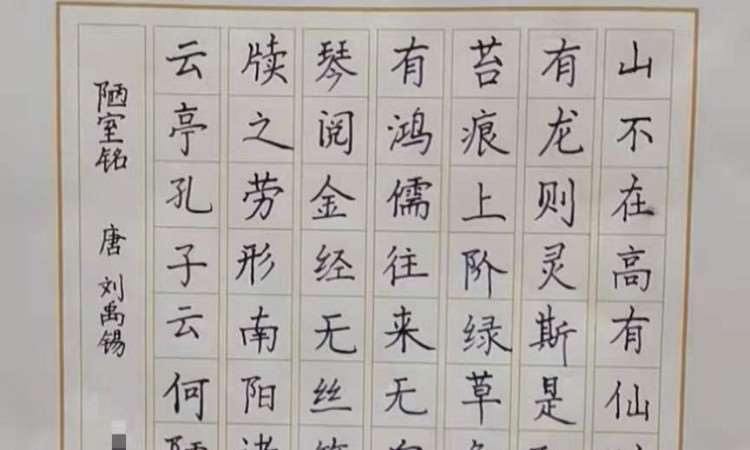 山不在高有仙
有龙则灵斯是
苔痕上阶绿草
有鸿儒往来无
琴阅金经无丝
牍之劳形南阳
云亭孔子云何
陋室铭 唐 刘禹锡